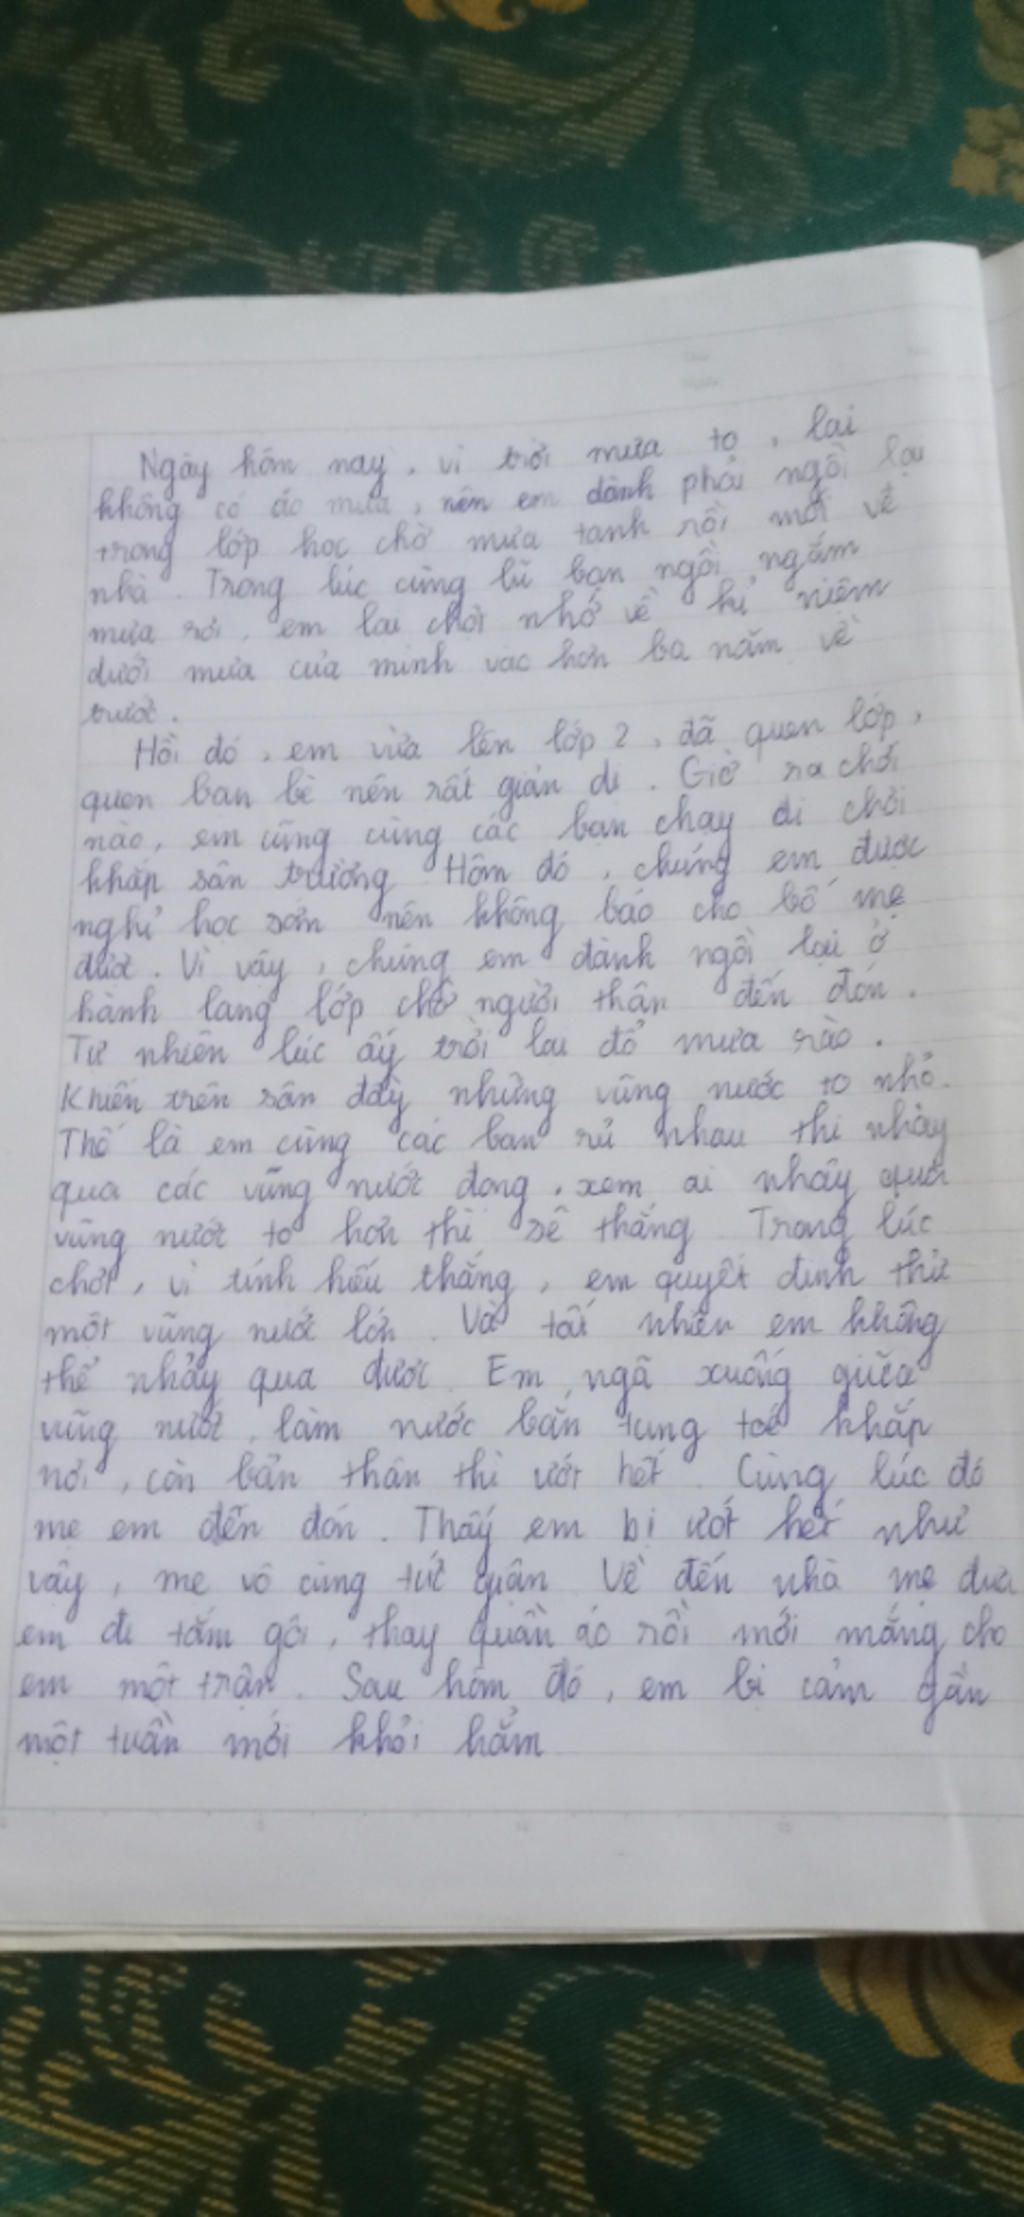 Ngày hôm nay, vì trời mưa to, lại
không có áo mưa, nên em đành phải ngồi lại
trong lớp học chờ mưa tạnh rồi mới về
nhà. Trong lúc cùng lũ bạn ngồi ngắm
mưa rơi, em lại chợt nhớ về kỉ niệm
dưới mưa của mình vào hơn ba năm về
trước.
Hồi đó, em vừa lên lớp 2, đã quen lớp,
quen bạn bè nên rất giạn dĩ. Giờ ra chơi
nào, em cũng cùng các bạn chạy đi chơi
khắp sân trường. Hôm đó, chúng em được
nghỉ học sớm nên không báo cho bố mẹ
được. Vì vậy, chúng em đành ngồi lại ở
hành lang lớp chờ người thân đến đón.
Tự nhiên lúc ấy trời lại đổ mưa rào.
Khiến trên sân đầy những vũng nước to nhỏ.
Thế là em cùng các bạn rủ nhau thi nhảy
qua các vũng nước đọng, xem ai nhảy qua
vũng nước to hơn thì sẽ thắng. Trong lúc
chơi, vì tính hiếu thắng, em quyết định thử
một vũng nước lớn. Và tất nhiên em không
thể nhảy qua được. Em ngã xuống giữa
vũng nước, làm nước bắn tung toé khắp
nơi, còn bản thân thì ướt hết. Cùng lúc đó
mẹ em đến đón. Thấy em bị ướt hết như
vậy, mẹ vô cùng tức giận. Về đến nhà mẹ đưa
em đi tắm gội, thay quần áo rồi mới mắng cho
em một trận. Sau hôm đó, em bị cảm gần
một tuần mới khỏi hẳn